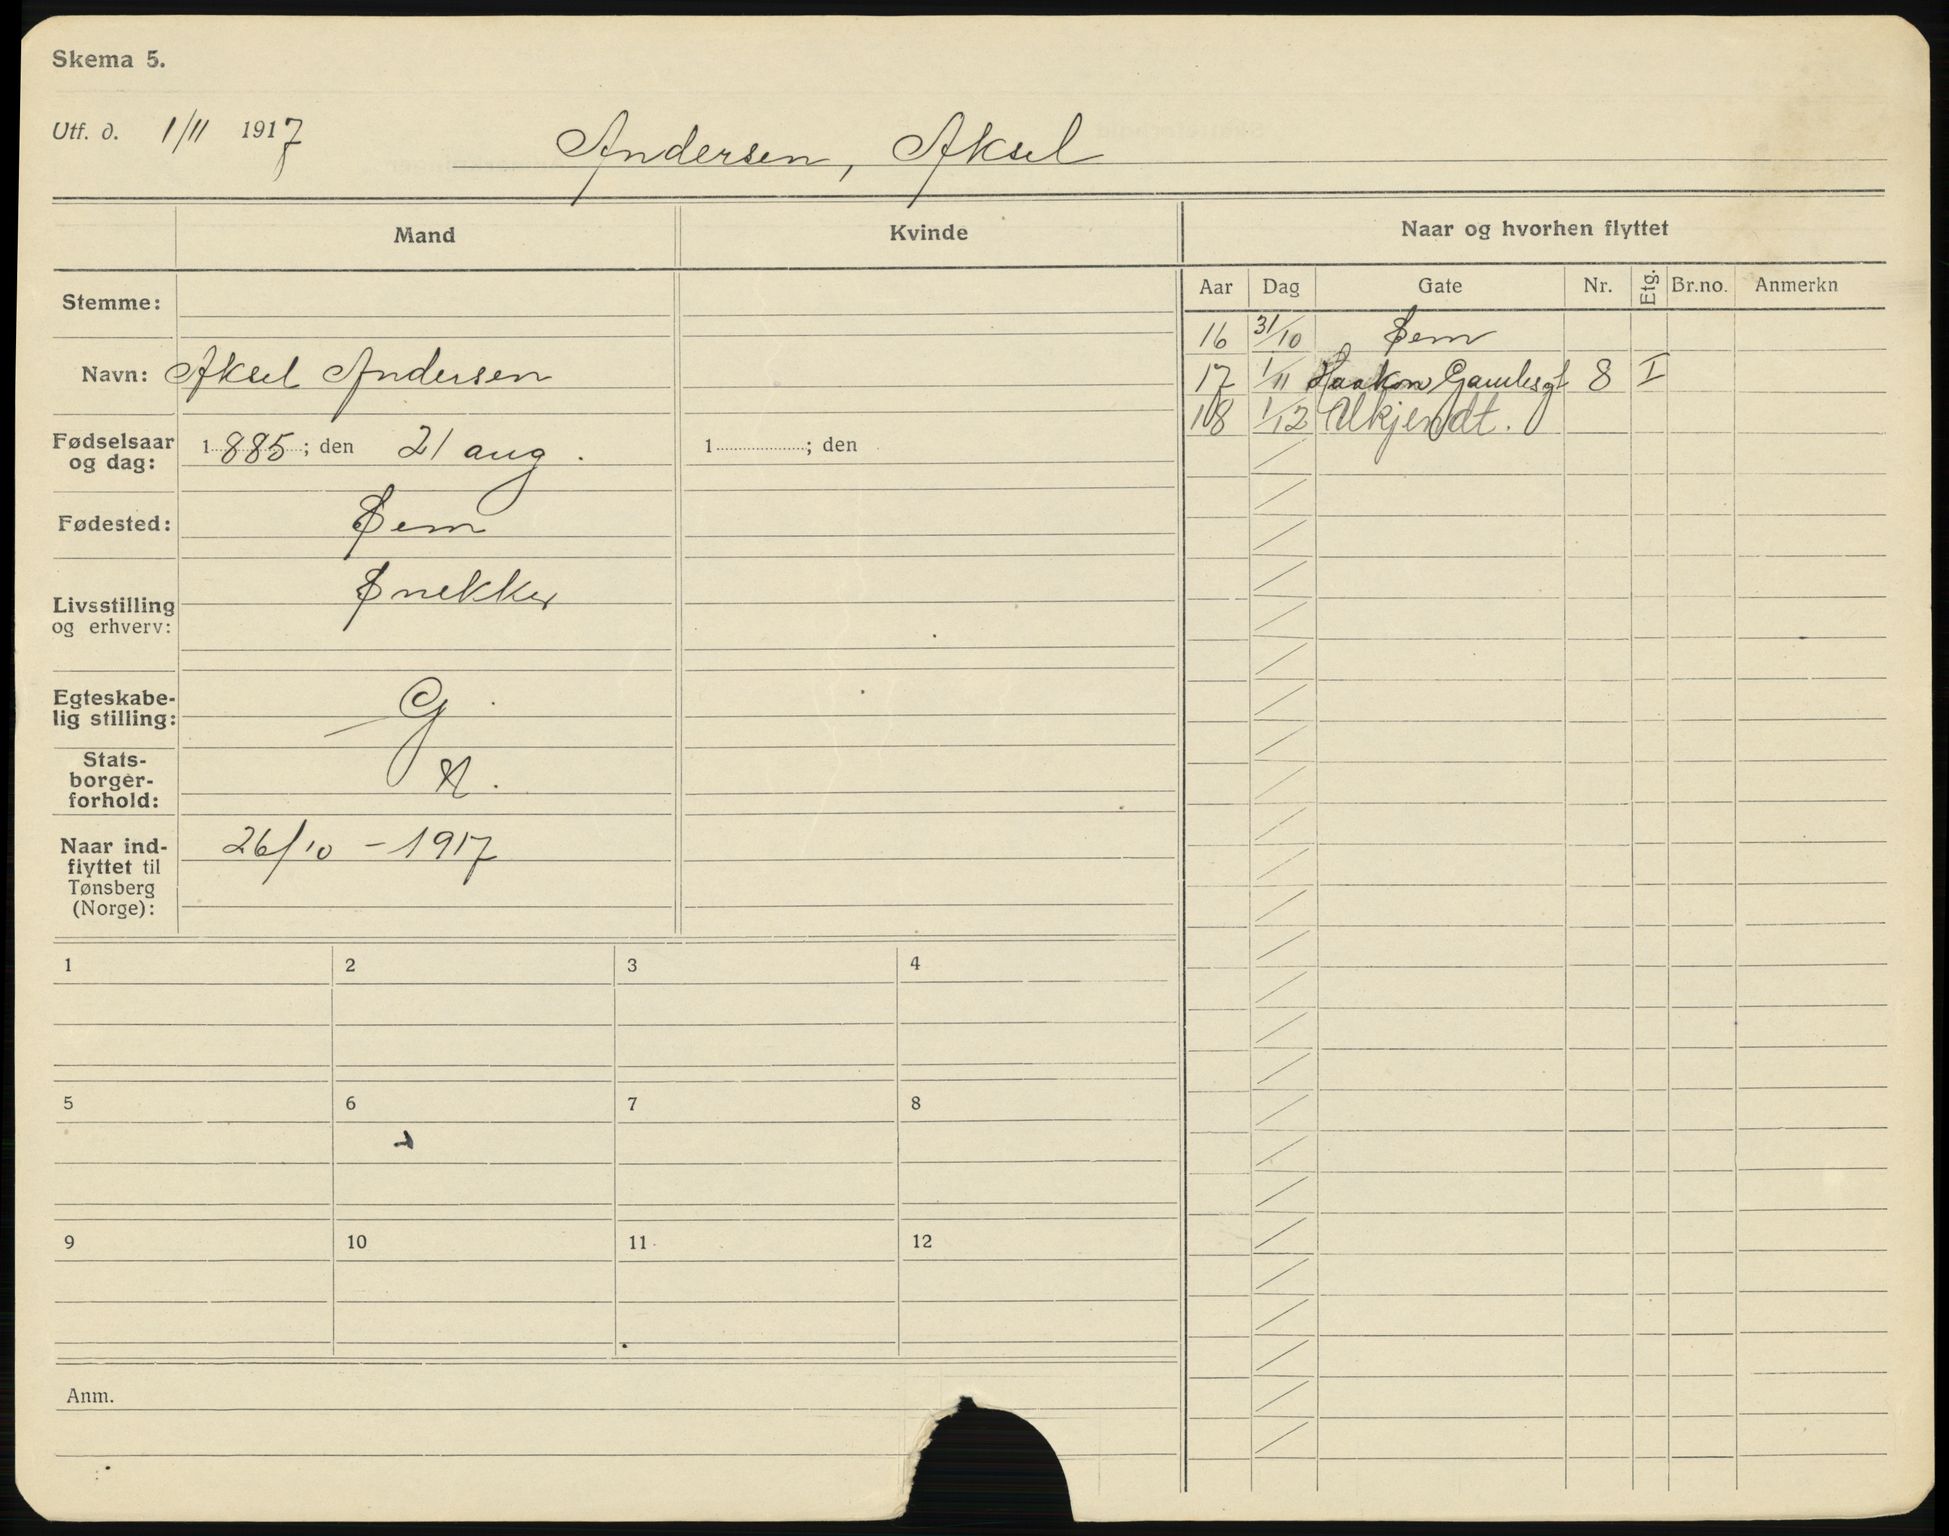 Skema 5.
Utf. d. 1/11 1917
Andersen, Aksel
Mand
Kvinde
Naar og hvorhen flyttet
Aar Dag Gate Nr. Etg. Br.no. Anmerkn
16 31/10 Sem
17 1/11 Haakon Gamlesgt 8 I
18 1/12 Ukjendt.
Stemme:
Navn: Aksel Andersen
Fødselsaar og dag: 1885; den 21 aug.
1 ; den
Fødested: Sem
Livsstilling og erhverv: Snekker
Egteskabe-
lig stilling: G
Stats-
borger-
forhold: N.
Naar ind-
flyttet til
Tønsberg
(Norge): 26/10 - 1917
1 2 3 4
5 6 7 8
9 10 11 12
Anm.